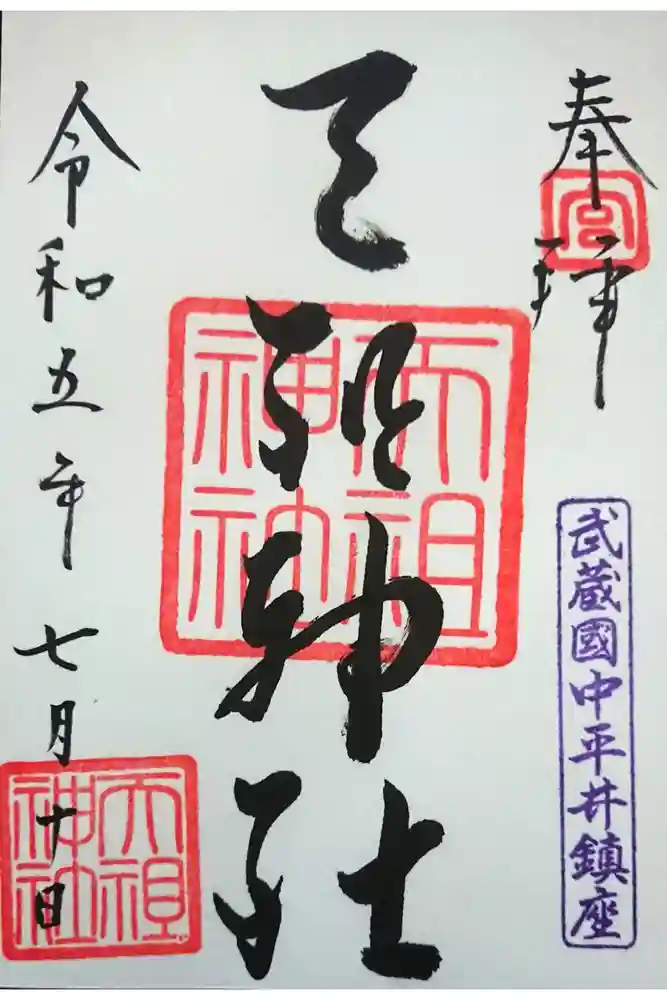 奉拝
宮
武蔵國中平井鎮座
天祖神社
天祖神社
令和五年七月十日
天祖神社